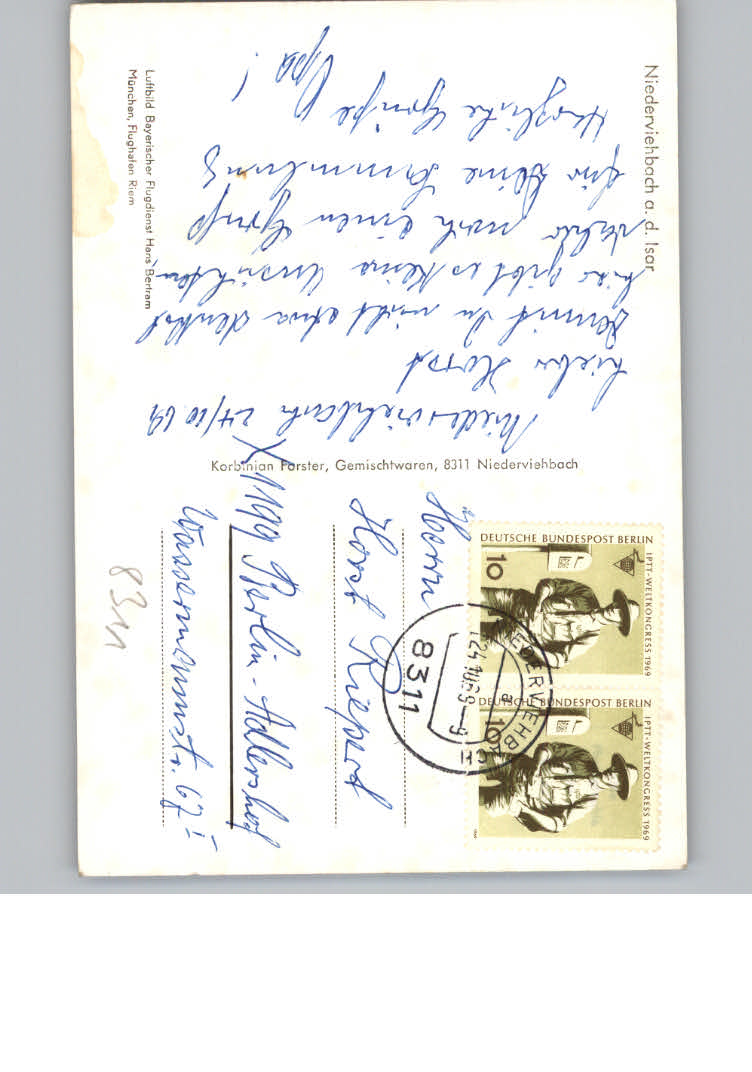 Niederviehbach a. d. Isar
Niederviehbach 24/10.69
Lieber Horst
Damit Du nicht etwa denkst
hier gibt es keine Ansichten,
daher noch einen Gruß
für Deine Sammlung
Herzliche Grüße Opa!
Luftbild Bayerischer Flugdienst Hans Bertram
München, Flughafen Riem
Korbinian Forster, Gemischtwaren, 8311 Niederviehbach
DEUTSCHE BUNDESPOST BERLIN
IPTT-WELTKONGRESS 1969
10
DEUTSCHE BUNDESPOST BERLIN
IPTT-WELTKONGRESS 1969
10
NIEDERVIEHBACH
a
24.10.69-9
8311
Herrn
Horst Riepert
X 1199 Berlin-Adlershof
Wassermannstr. 67 I
8311